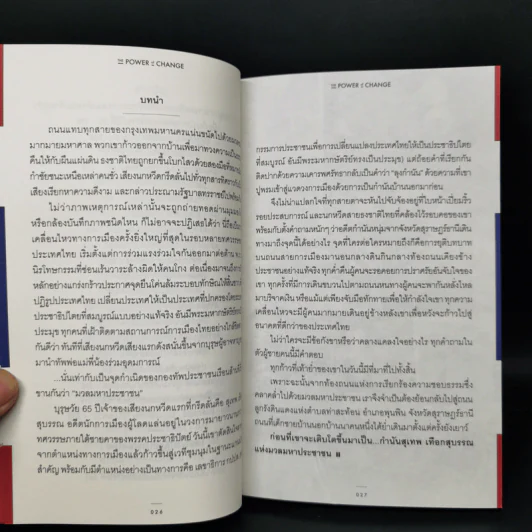 THE POWER of CHANGE
บทนำ
ถนนแทบทุกสายของกรุงเทพมหานครแน่นขนัดไปด้วย
มากมายมหาศาล พวกเขาก้าวออกจากบ้านเพื่อมาทวงความเป็น
คืนให้กับผืนแผ่นดิน ธงชาติไทยถูกยกขึ้นโบกไสวด้วยสองมือ
กำชัยชนะเหนือเหล่าคนชั่ว เสียงนกหวีดกรีดลั่นไปทั่วทุกสารทิศ
เสียงเรียกหาความดีงาม และกล่าวประณามรัฐบาลทรราชย์
ไม่ว่าภาพเหตุการณ์เหล่านั้นจะถูกถ่ายทอดผ่านมุมมอง
หรือกล้องบันทึกภาพชนิดไหน ก็ไม่อาจจะปฏิเสธได้ว่า นี่คือ
เคลื่อนไหวทางการเมืองครั้งยิ่งใหญ่ที่สุดในรอบหลายทศวรรษ
ประเทศไทย เริ่มตั้งแต่การร่วมแรงร่วมใจกันออกมาต่อต้าน
นิรโทษกรรมที่ซ่อนเร้นวาระล้างผิดให้คนโกง ต่อเนื่องมาจนถึง
หลักอย่างแกร่งกล้าว่าประกาศจุดยืนโค่นล้มระบอบทักษิณให้สิ้น
ปฏิรูปประเทศไทย เปลี่ยนประเทศให้เป็นประเทศที่ปกครอง
ประชาธิปไตยที่สมบูรณ์แบบอย่างแท้จริง อันมีพระมหากษัตริย์
ประมุข ทุกคนที่เฝ้าติดตามสถานการณ์การเมืองไทยอย่างใกล้ชิด
กันดีว่า ทันทีที่เสียงนกหวีดเสียงแรกดังสนั่นขึ้นจากบุรุษผู้
มานำทัพพ่อแม่พี่น้องร่วมอุดมการณ์
...นั่นเท่ากับเป็นจุดกำเนิดของกองทัพประชาชนเรือนล้าน
ขานกันว่า “มวลมหาประชาชน”
บุรุษวัย 65 ปีเจ้าของเสียงนกหวีดแรกที่กรีดลั่นคือ สุเทพ
สุบรรณ อดีตนักการเมืองผู้โลดแล่นอยู่ในวงการมายาวนาน
ทศวรรษภายใต้ชายคาของพรรคประชาธิปัตย์ วันนี้เขาตัดสินใจ
จากตำแหน่งทางการเมืองแล้วก้าวขึ้นสู่เวทีชุมนุมในฐานะ
สำคัญ พร้อมกับมีตำแหน่งอย่างเป็นทางการคือ เลขาธิการ
026
THE POWER of CHANGE
กรรมการประชาชนเพื่อการเปลี่ยนแปลงประเทศไทยให้เป็นประชาธิปไตย
ที่สมบูรณ์ อันมีพระมหากษัตริย์ทรงเป็นประมุข แต่ถ้อยคำที่เรียกกัน
ติดปากด้วยความเคารพศรัทธากลับเป็นคำว่า “ลุงกำนัน” ด้วยความที่เขา
ปูพรมเข้าสู่แวดวงการเมืองด้วยการเป็นกำนันบ้านนอกมาก่อน
จึงไม่น่าแปลกใจที่ทุกสายตาจะหันไปจับจ้องอยู่ที่ใบหน้าเปี่ยมริ้ว
รอยประสบการณ์ และนกหวีดสายธงชาติไทยที่คล้องไว้รอบคอของเขา
พร้อมกับตั้งคำถามหนักๆ ว่าอดีตกำนันหนุ่มจากจังหวัดสุราษฎร์ธานีเดิน
ทางมาถึงจุดนี้ได้อย่างไร จุดที่ใครต่อใครหมายถึงก็คือการชูสิบบทบาท
บนถนนสายการเมืองมานอนกลางดินกินกลางท้องถนนเคียงข้าง
ประชาชนอย่างแท้จริง ทุกค่ำคืนผู้คนจะรอคอยการปราศรัยอันจับใจของ
เขา ทุกครั้งที่มีการเดินขบวนไปตามถนนหนทางผู้คนจะพากันหลั่งไหล
มาบริจาคเงิน หรือแม้แต่เพียงจับมือทักทายเพื่อให้กำลังใจเขา ทุกความ
เคลื่อนไหวจะมีผู้คนมากมายเดินอยู่ข้างหลังเขาเพื่อหวังจะก้าวไปสู่
อนาคตที่ดีกว่าของประเทศไทย
ไม่ว่าใครจะมีข้อกังขาหรือว่าคลางแคลงใจอย่างไร ทุกคำถามใน
ตัวผู้ชายคนนี้มีคำตอบ
ทุกก้าวที่เท้าย่ำของเขาในวันนี้มีที่มาที่ไปทั้งสิ้น
เพราะฉะนั้นจากท้องถนนแห่งการเรียกร้องความชอบธรรมซึ่ง
คลาคล่ำไปด้วยมวลมหาประชาชน เราจึงจำเป็นต้องย้อนกลับไปสู่ถนน
ลูกรังดินแดงแห่งตำบลท่าสะท้อน อำเภอพุนพิน จังหวัดสุราษฎร์ธานี
ถนนที่เด็กชายบ้านนอกบ้านนาคนหนึ่งได้ย่ำเดินมาตั้งแต่ครั้งยังเยาว์
ก่อนที่เขาจะเติบโตขึ้นมาเป็น...กำนันสุเทพ เทือกสุบรรณ
แห่งมวลมหาประชาชน
027